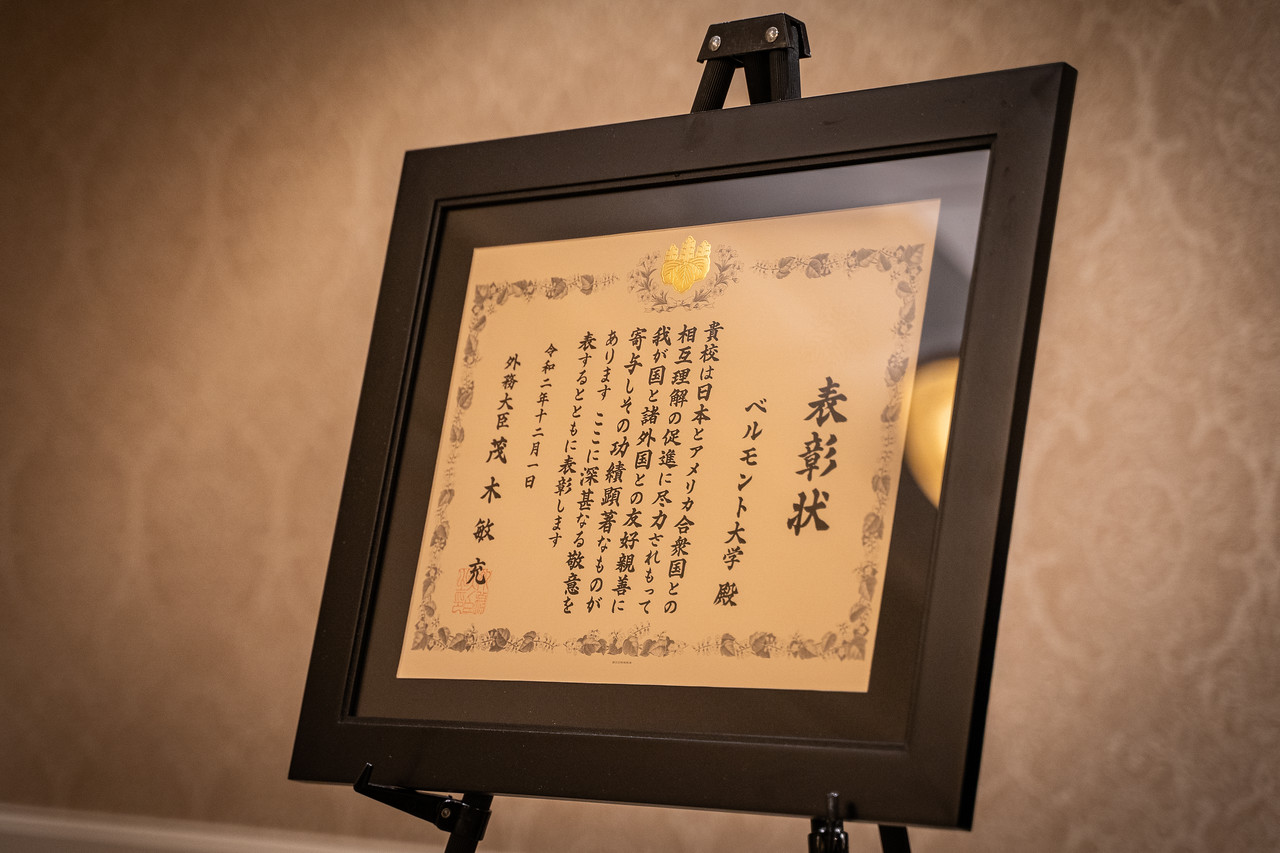 表彰状
ベルモント大学 殿
貴校は日本とアメリカ合衆国との
相互理解の促進に尽力されもって
我が国と諸外国との友好親善に
寄与しその功績顕著なものが
あります ここに深甚なる敬意を
表するとともに表彰します
令和二年十二月一日
外務大臣 茂木敏充